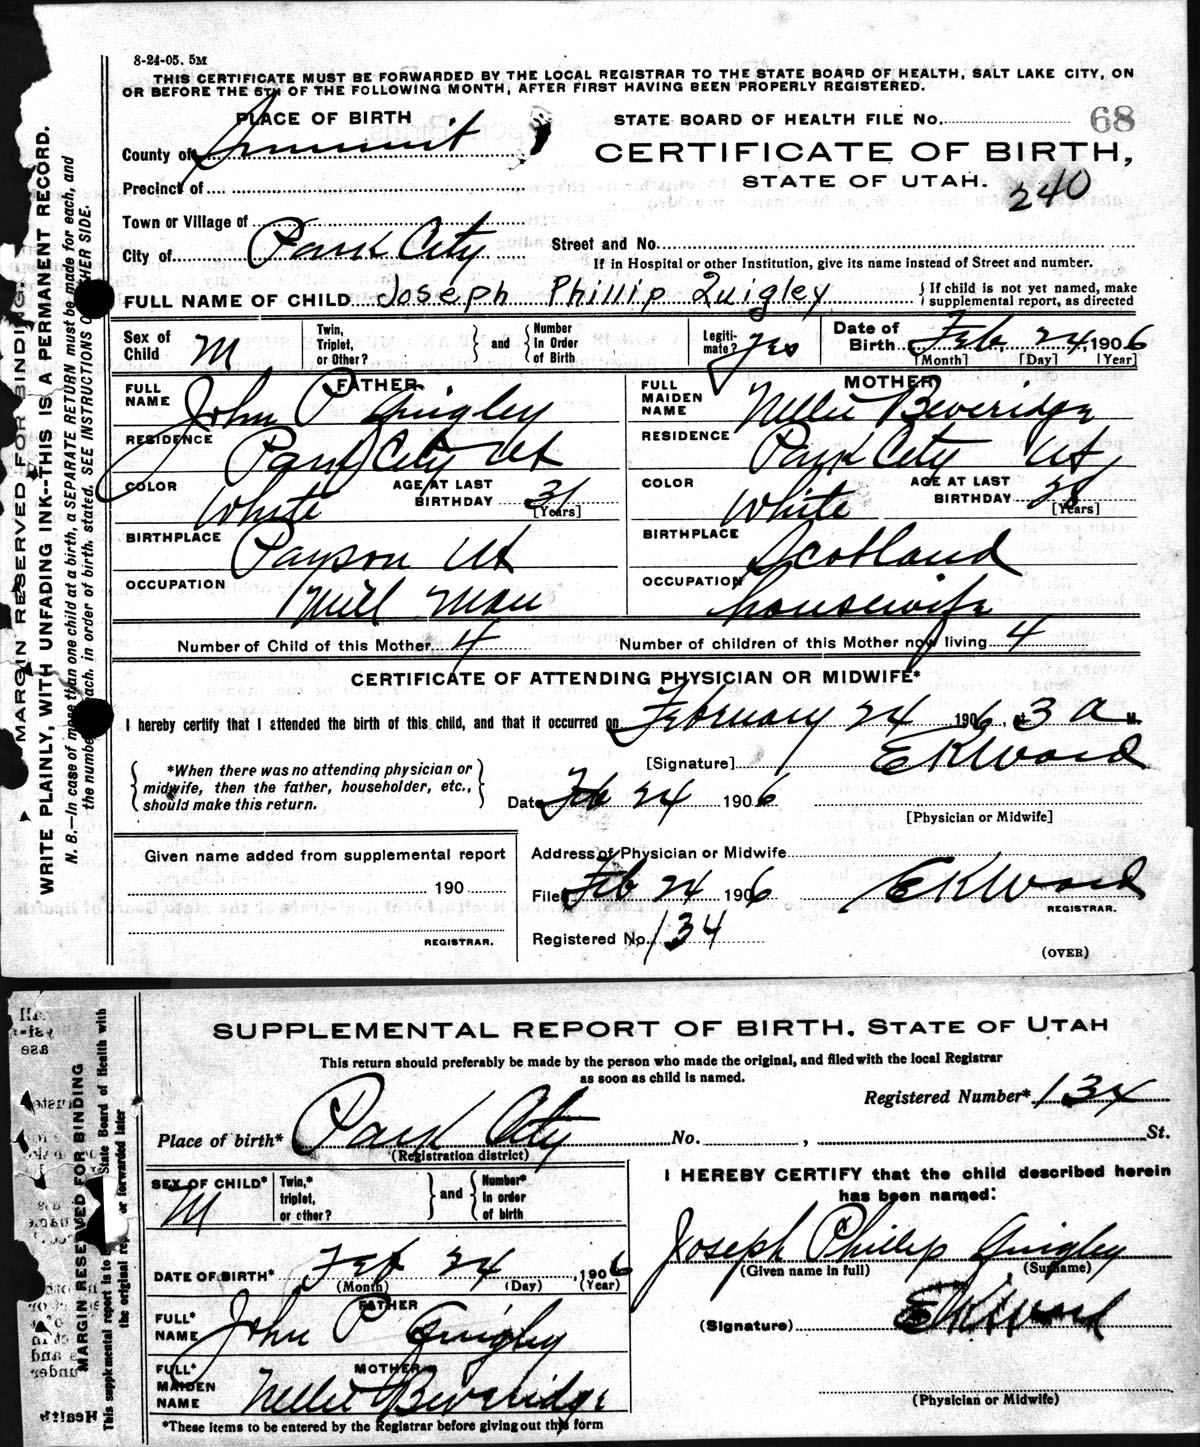 8-24-05. 5M
THIS CERTIFICATE MUST BE FORWARDED BY THE LOCAL REGISTRAR TO THE STATE BOARD OF HEALTH, SALT LAKE CITY, ON
OR BEFORE THE 5TH OF THE FOLLOWING MONTH, AFTER FIRST HAVING BEEN PROPERLY REGISTERED.
PLACE OF BIRTH
STATE BOARD OF HEALTH FILE No. 68
County of Summit
CERTIFICATE OF BIRTH,
STATE OF UTAH.
240
Precinct of
Town or Village of
City of Park City
Street and No.
If in Hospital or other Institution, give its name instead of Street and number.
FULL NAME OF CHILD Joseph Phillip Quigley
{ If child is not yet named, make
supplemental report, as directed
Sex of Child M
Twin, Triplet, or Other? } and { Number In Order of Birth
Legiti-mate? Yes
Date of Birth Feb. 24, 1906
[Month] [Day] [Year]
FATHER
FULL NAME John P Quigley
RESIDENCE Park City Ut
COLOR White
AGE AT LAST BIRTHDAY 31
[Years]
BIRTHPLACE Payson Ut
OCCUPATION Mill Man
MOTHER
FULL MAIDEN NAME Nellie Beveridge
RESIDENCE Park City Ut
COLOR White
AGE AT LAST BIRTHDAY 28
[Years]
BIRTHPLACE Scotland
OCCUPATION housewife
Number of Child of this Mother 4
Number of children of this Mother now living 4
CERTIFICATE OF ATTENDING PHYSICIAN OR MIDWIFE*
I hereby certify that I attended the birth of this child, and that it occurred on February 24 1906, at 3 A M.
{ *When there was no attending physician or
midwife, then the father, householder, etc.,
should make this return. }
[Signature] E K Ward
Date Feb 24 1906
[Physician or Midwife]
Given name added from supplemental report
190
REGISTRAR.
Address of Physician or Midwife
Filed Feb 24 1906 E K Ward
REGISTRAR.
Registered No. 134
(OVER)
MARGIN RESERVED FOR BINDING.
WRITE PLAINLY, WITH UNFADING INK--THIS IS A PERMANENT RECORD.
N. B.—In case of more than one child at a birth, a SEPARATE RETURN must be made for each, and
the number each, in order of birth, stated. SEE INSTRUCTIONS OTHER SIDE.
SUPPLEMENTAL REPORT OF BIRTH. STATE OF UTAH
This return should preferably be made by the person who made the original, and filed with the local Registrar
as soon as child is named.
Registered Number* 134
Place of birth* Park City No. , St.
(Registration district)
SEX OF CHILD* M
Twin,* triplet, or other? } and { Number* In order of birth
DATE OF BIRTH* Feb 24, 1906
(Month) (Day) (Year)
FATHER
FULL* NAME John P Quigley
MOTHER
FULL* MAIDEN NAME Nellie Beveridge
*These items to be entered by the Registrar before giving out this form
I HEREBY CERTIFY that the child described herein
has been named:
Joseph Phillip Quigley
(Given name in full) (Surname)
(Signature) E K Ward
(Physician or Midwife)
MARGIN RESERVED FOR BINDING
This supplemental report is to State Board of Health with
the original rep or forwarded later